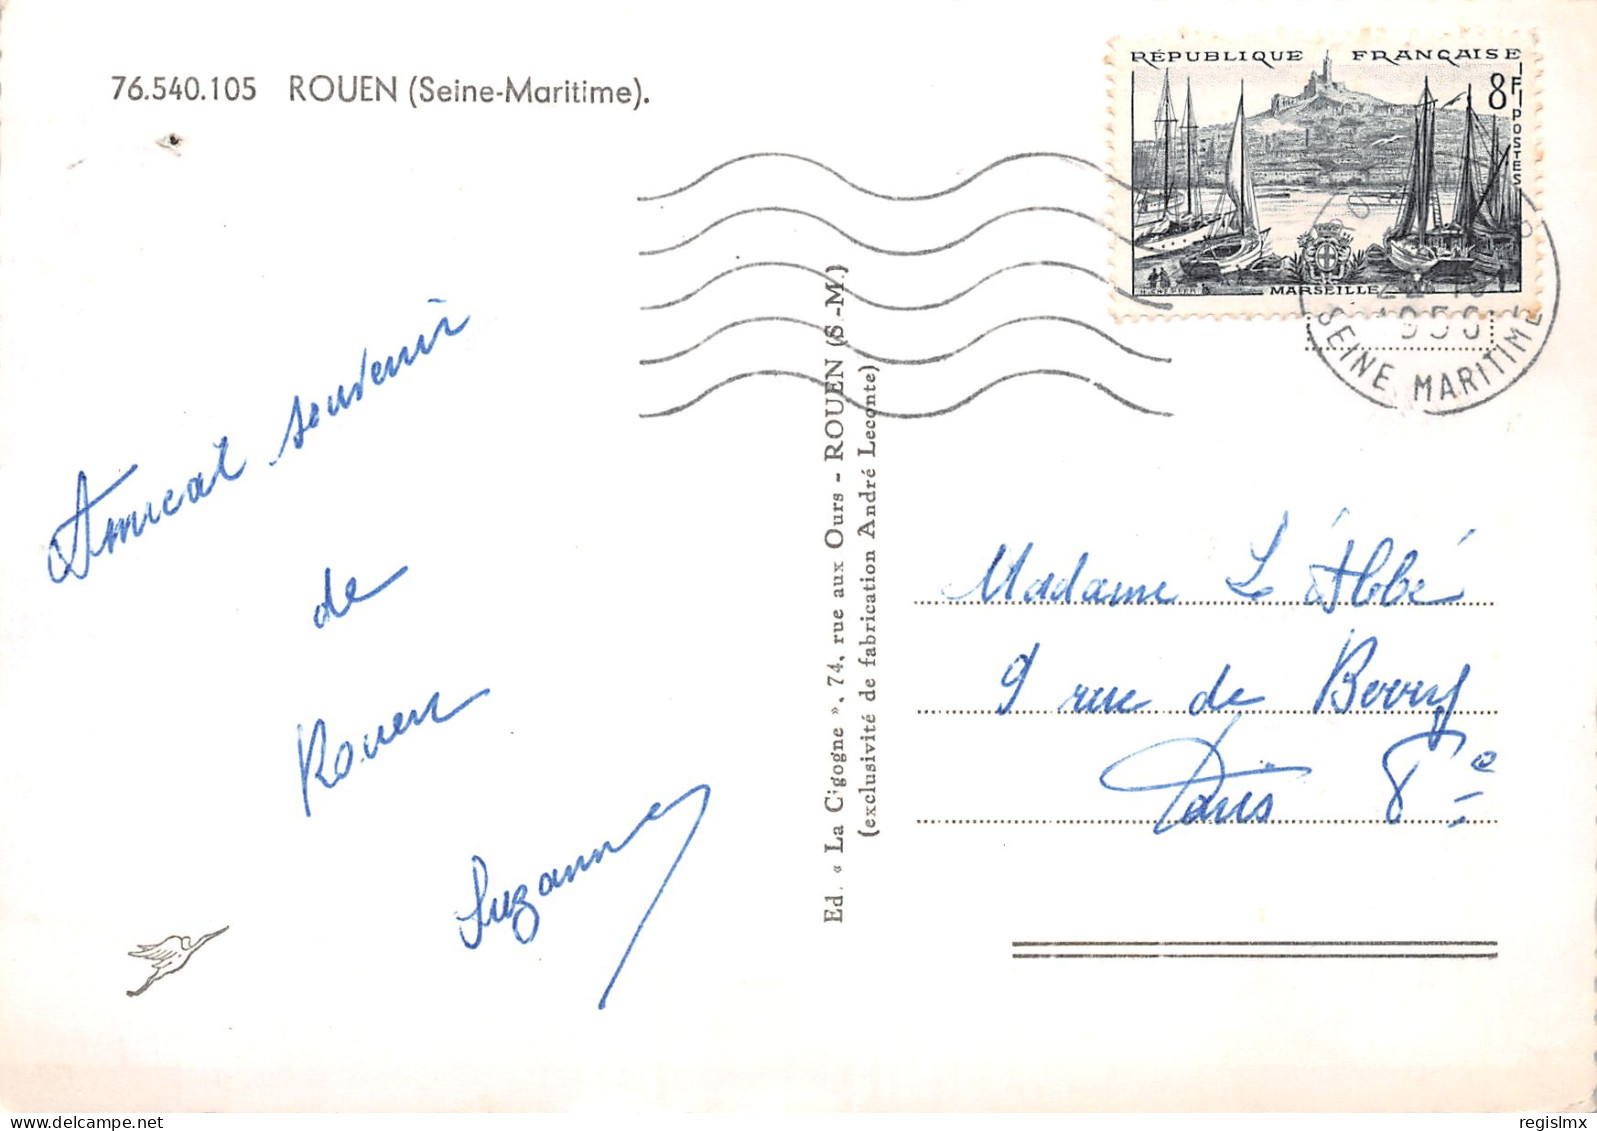 76.540.105 ROUEN (Seine-Maritime).
RÉPUBLIQUE FRANÇAISE
8F
POSTES
MARSEILLE
SEINE MARITIME
Amical souvenir
de
Rouen
Suzanne
Ed. « La Cigogne », 74, rue aux Ours - ROUEN (S.-M.)
(exclusivité de fabrication André Leconte)
Madame Le Abbé
9 rue de Berry
Paris 8e
regislmx